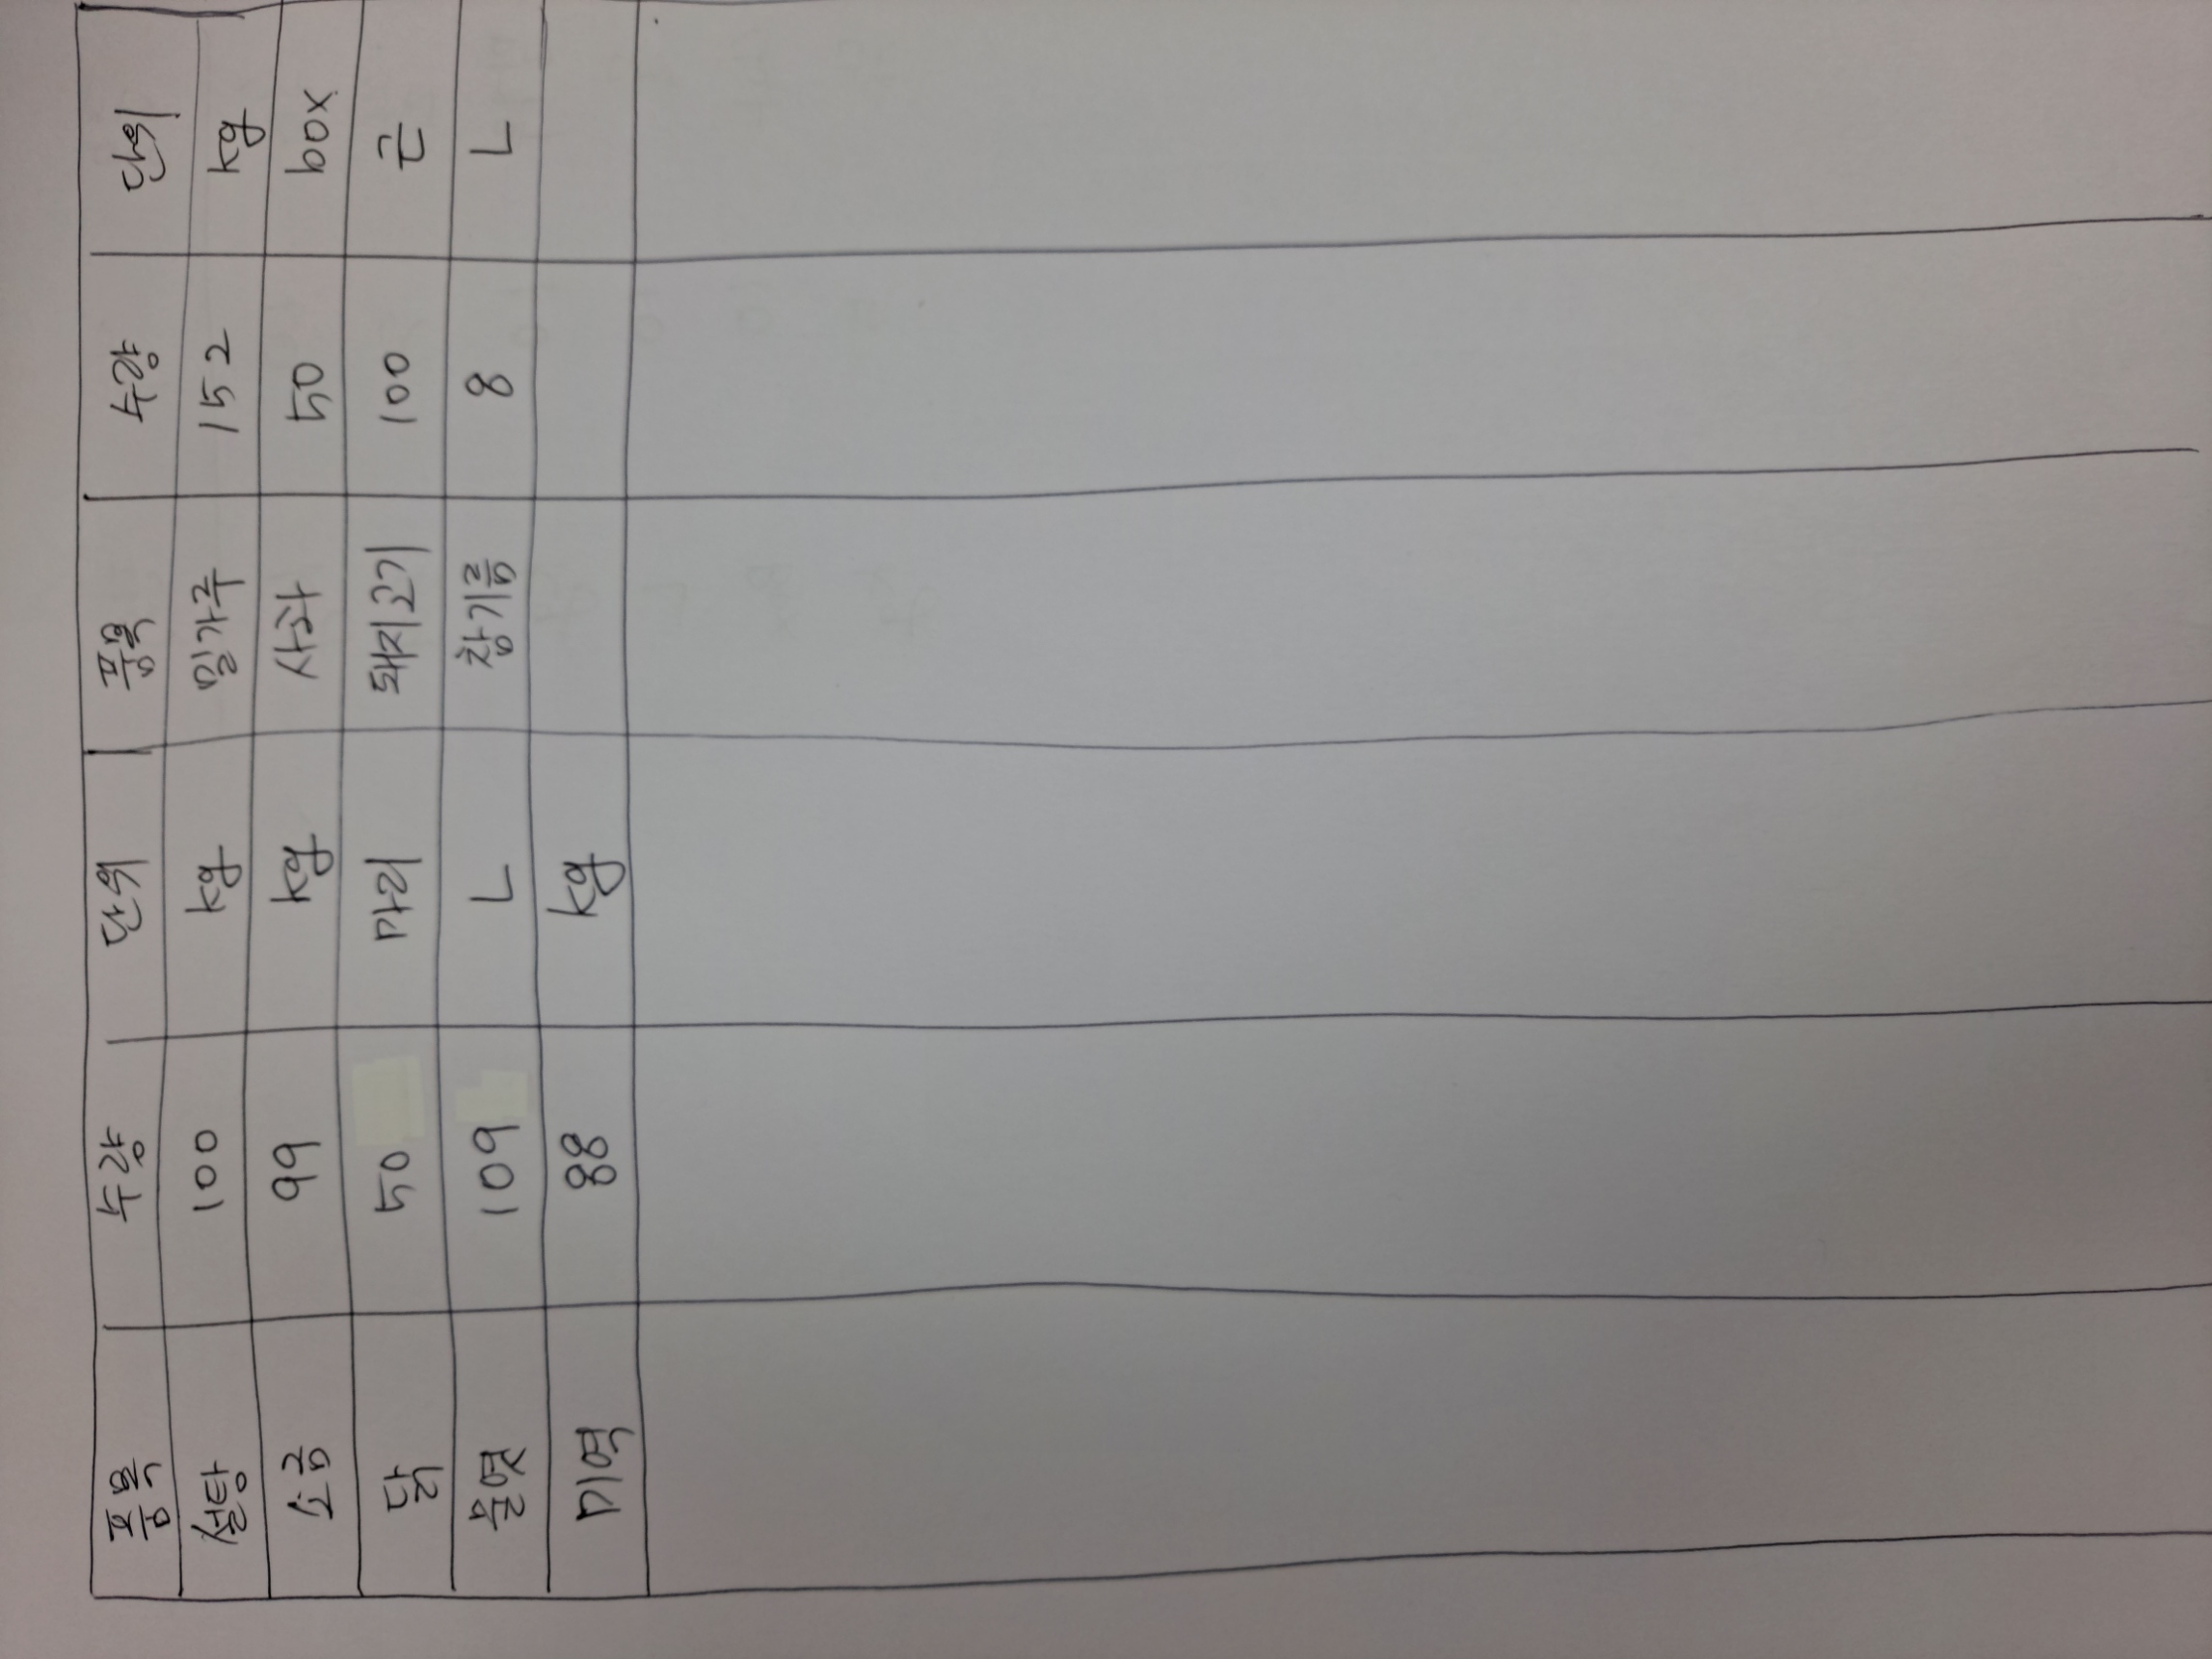 품목 수량 단위 품목 수량 단위
설탕 100 kg 밀가루 152 kg
소금 99 kg 사과 50 box
닭 50 마리 돼지고기 100 근
물엿 109 L 참기름 8 L
미역 88 kg